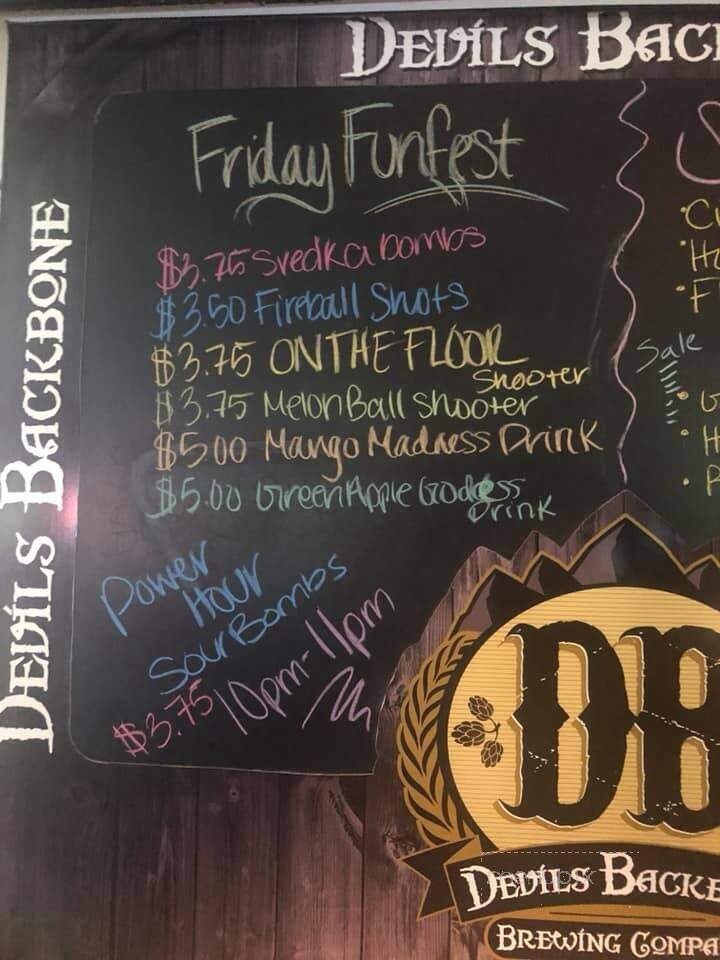 DEVILS BAC
DEVILS BACKBONE
Friday Funfest
$3.75 Svedka bombs
$3.50 Fireball Shots
$3.75 ON THE FLOOR
Shooter
$3.75 Melon Ball Shooter
$5.00 Mango Madness Drink
$5.00 Green Apple Goddess
Drink
Power
Hour
Sour Bombs
$3.75 10pm-11pm
Sale
DB
DEVILS BACKB
BREWING COMPA